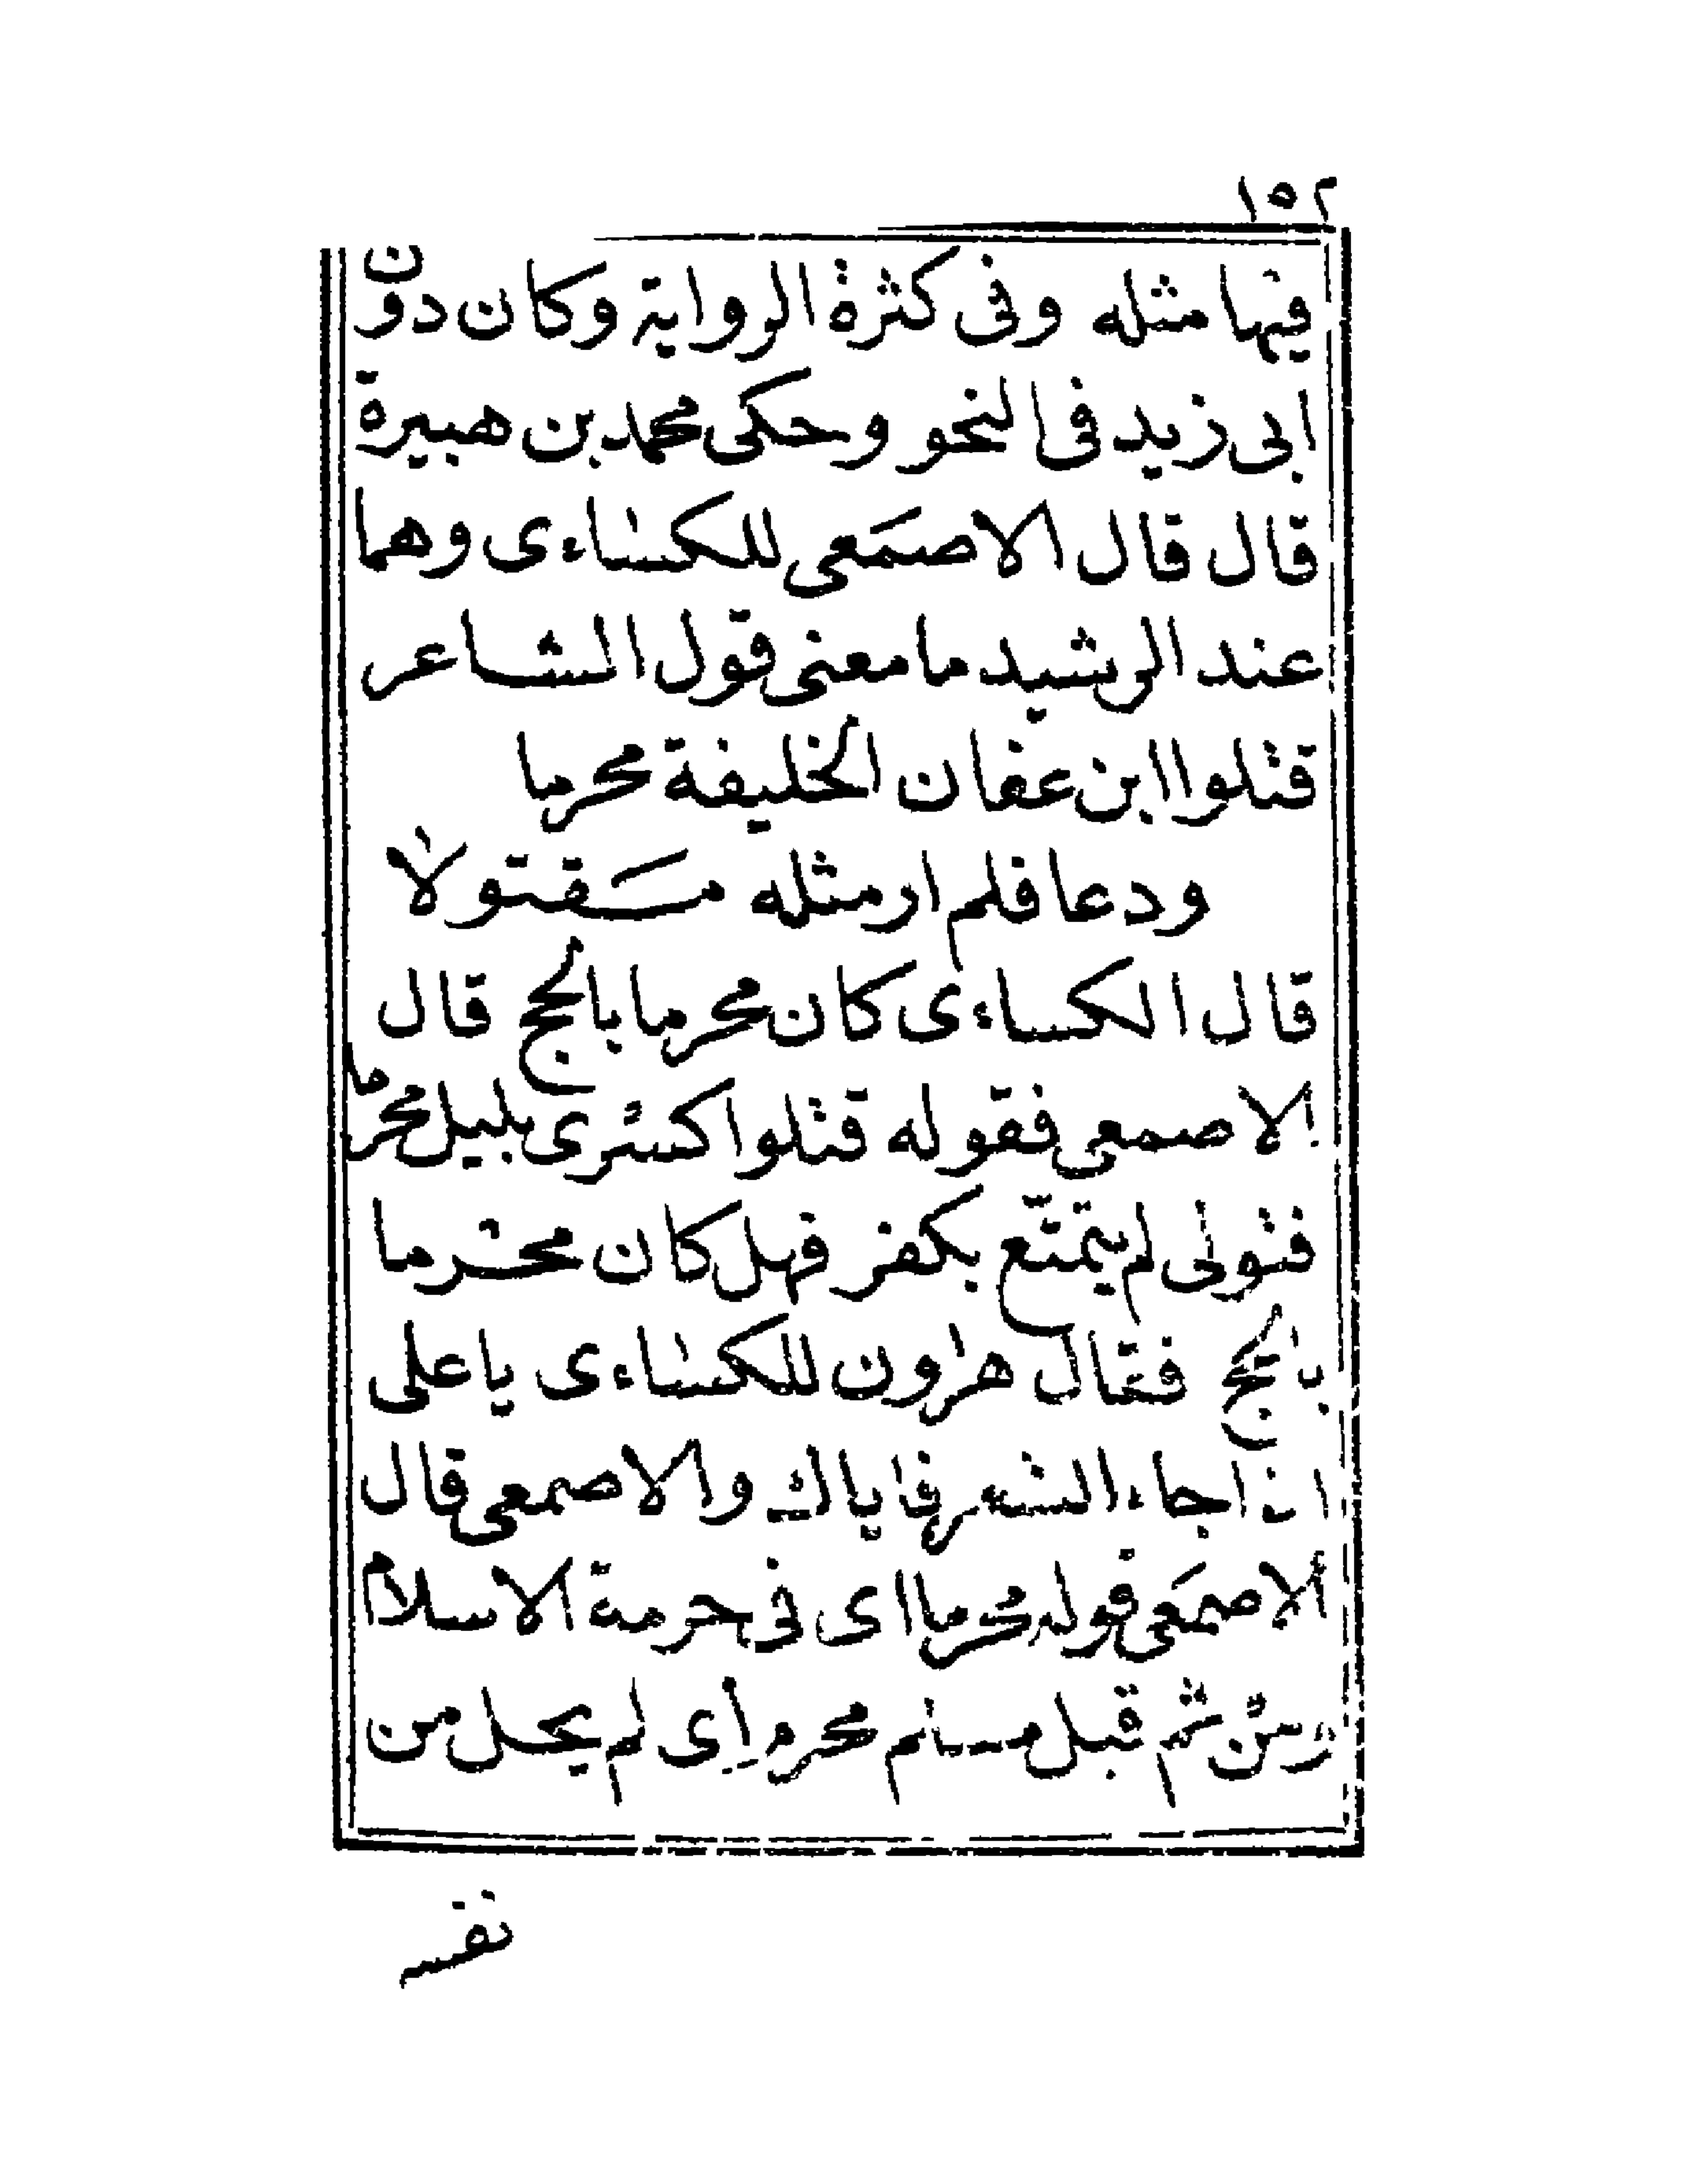 ١٥٢
فيها مثله وفى كثرة الرواية وكان دون
ابى زيد فى النحو وحكى محمد بن هبيرة
قال قال الاصمَعى للكساءى وهما
عند الرشيد ما معنى قول الشاعر
قتلوا ابن عفان الخليفة محرما
ودعا فلم ار مثله مقتولا
قال الكساءى كان محرما بالحج قال
الاصمعى فقوله قتلوا كسرى بليل محرما
فتولى لم يمتّع بكفن فهل كان محرما
بالحج فقال هرون للكساءى يا على
اذا جاء الشعر فاياك والاصمعى قال
الاصمَعى قوله محرما اى فى حرمة الاسلام
ومن ثم قبل مسلم محرم اى لم يحل من
نفسه